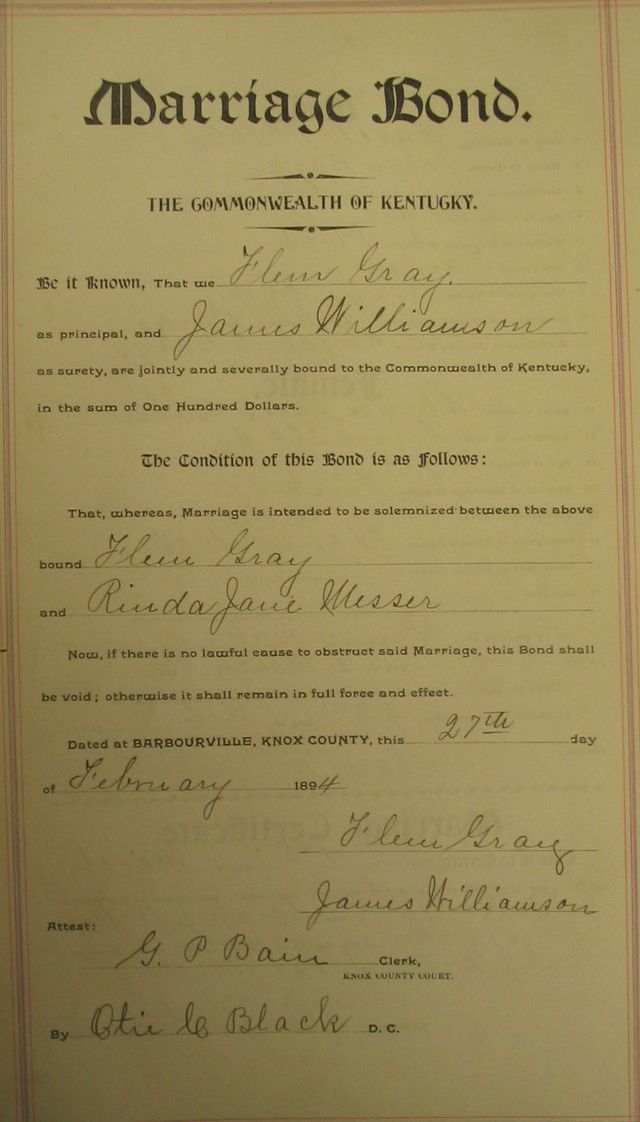 Marriage Bond.
THE COMMONWEALTH OF KENTUCKY.
Be it Known, That we Flem Gray.
as principal, and James Williamson
as surety, are jointly and severally bound to the Commonwealth of Kentucky,
in the sum of One Hundred Dollars.
The Condition of this Bond is as Follows:
That, whereas, Marriage is intended to be solemnized between the above
bound Flem Gray
and Rinda Jane Messer
Now, if there is no lawful cause to obstruct said Marriage, this Bond shall
be void; otherwise it shall remain in full force and effect.
Dated at BARBOURVILLE, KNOX COUNTY, this 27th day
of February 1894
Flem Gray
James Williamson
Attest:
G. P Bain Clerk,
KNOX COUNTY COURT.
By Black D.C.